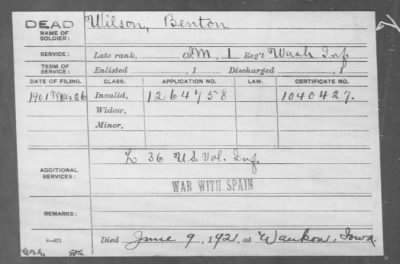 DEAD
NAME OF SOLDIER:
Wilson, Benton
SERVICE: Late rank, M, 1 Reg't Wash Inf.
TERM OF SERVICE: Enlisted , 1 Discharged , 1
DATE OF FILING. CLASS. APPLICATION NO. LAW. CERTIFICATE NO.
1901 Mar, 26 Invalid, 1264758 1040427.
Widow,
Minor,
ADDITIONAL SERVICES:
L 36 U.S. Vol. Inf.
WAR WITH SPAIN
REMARKS:
Died June 9, 1921, at Waukon, Iowa